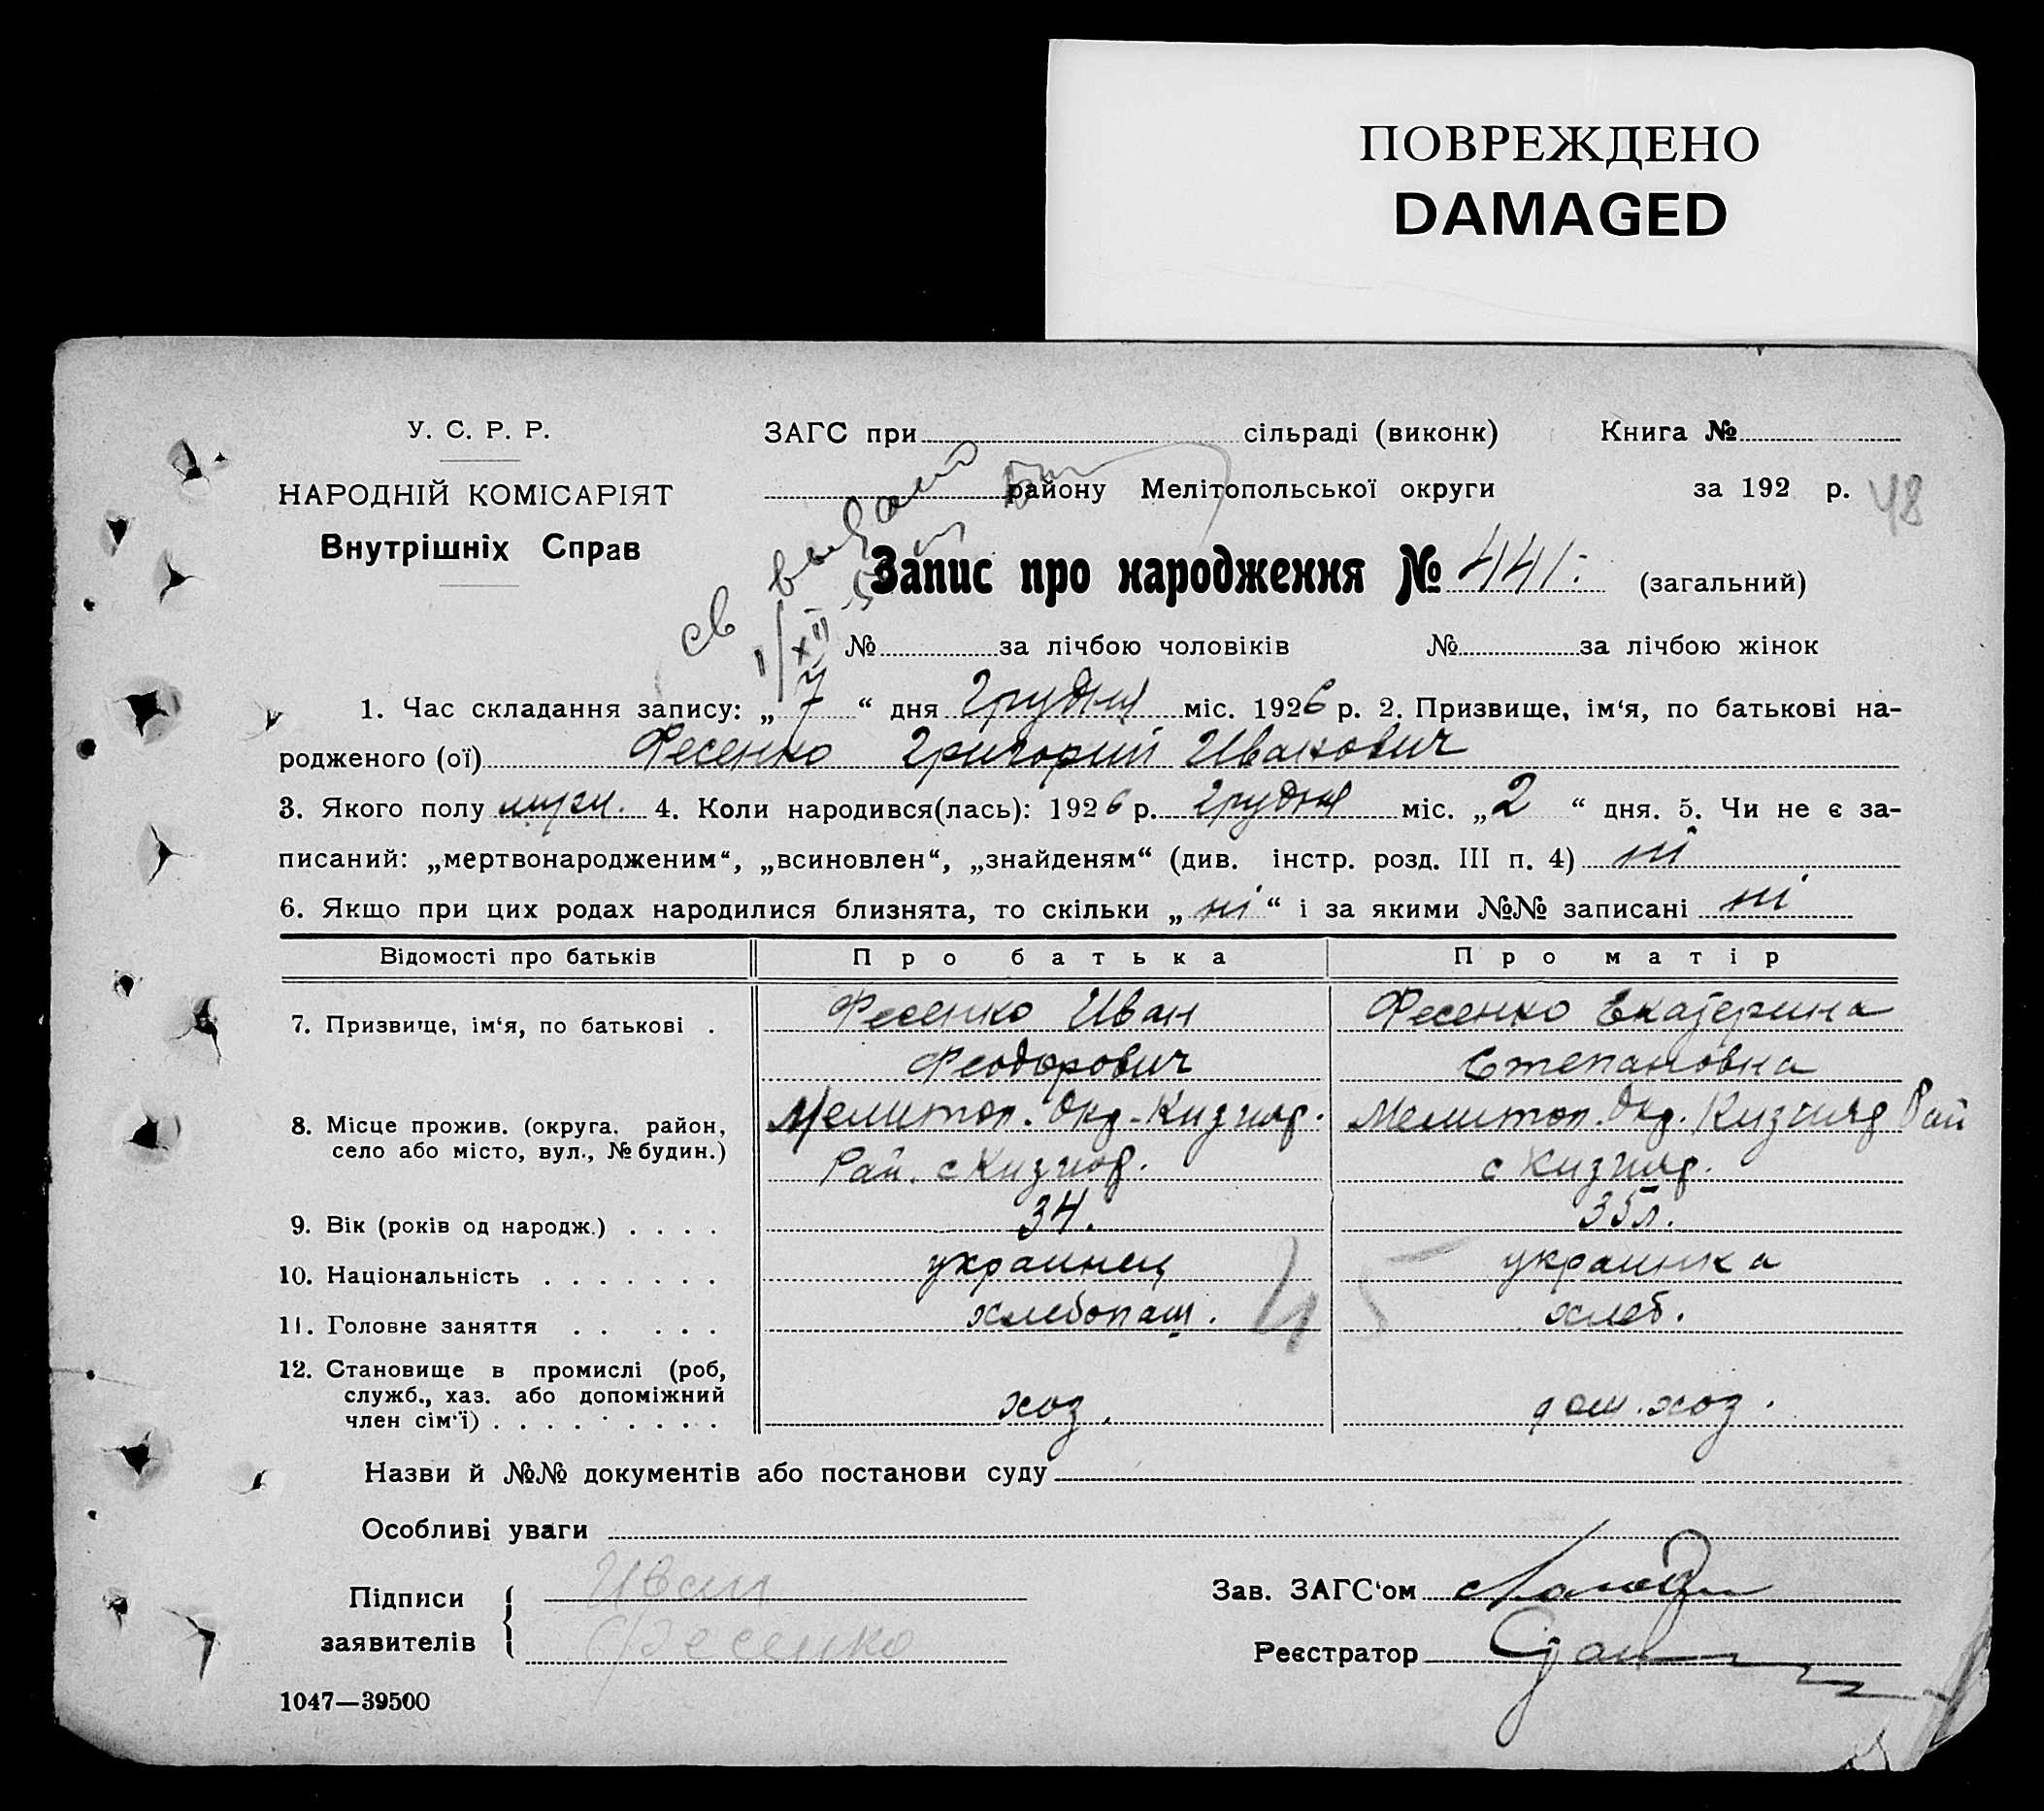 ПОВРЕЖДЕНО
DAMAGED
У. С. Р. Р.
НАРОДНІЙ КОМІСАРІЯТ
Внутрішніх Справ
ЗАГС при сільраді (виконк) Книга №
району Мелітопольської округи за 192 р. 48
св выдано
Запис про народження № 441. (загальний)
1/XII
№ за лічбою чоловіків № за лічбою жінок
1. Час складання запису: „ 7 “ дня Грудня міс. 1926 р. 2. Призвище, ім‘я, по батькові на-
родженого (ої) Фесенко Григорий Иванович
3. Якого полу муж. 4. Коли народився(лась): 1926 р. Грудня міс. „ 2 “ дня. 5. Чи не є за-
писаний: „мертвонародженим“, „всиновлен“, „знайденям“ (див. інстр. розд. III п. 4) ні
6. Якщо при цих родах народилися близнята, то скільки „ ні “ і за якими №№ записані ні
Відомості про батьків Про батька Про матір
7. Призвище, ім‘я, по батькові . Фесенко Иван Фесенко Екатерина
Феодорович Степановна
8. Місце прожив. (округа, район, Мелитоп. Окр. Кизияр. Мелитоп. Окр. Кизияр Рай
село або місто, вул., № будин.) Рай. с Кизияр. с Кизияр.
9. Вік (років од народж.) . . . . 34. 35 л.
10. Національність . . . . . . . украинец украинка
11. Головне заняття . . . . . хлебопаш. хлеб.
45
12. Становище в промислі (роб,
служб., хаз. або допоміжний
член сім‘ї) . . . . . . . . . хоз. дом. хоз.
Назви й №№ документів або постанови суду
Особливі уваги
Підписи Иван Зав. ЗАГС‘ом
заявителів Фесенко Реєстратор
1047—39500